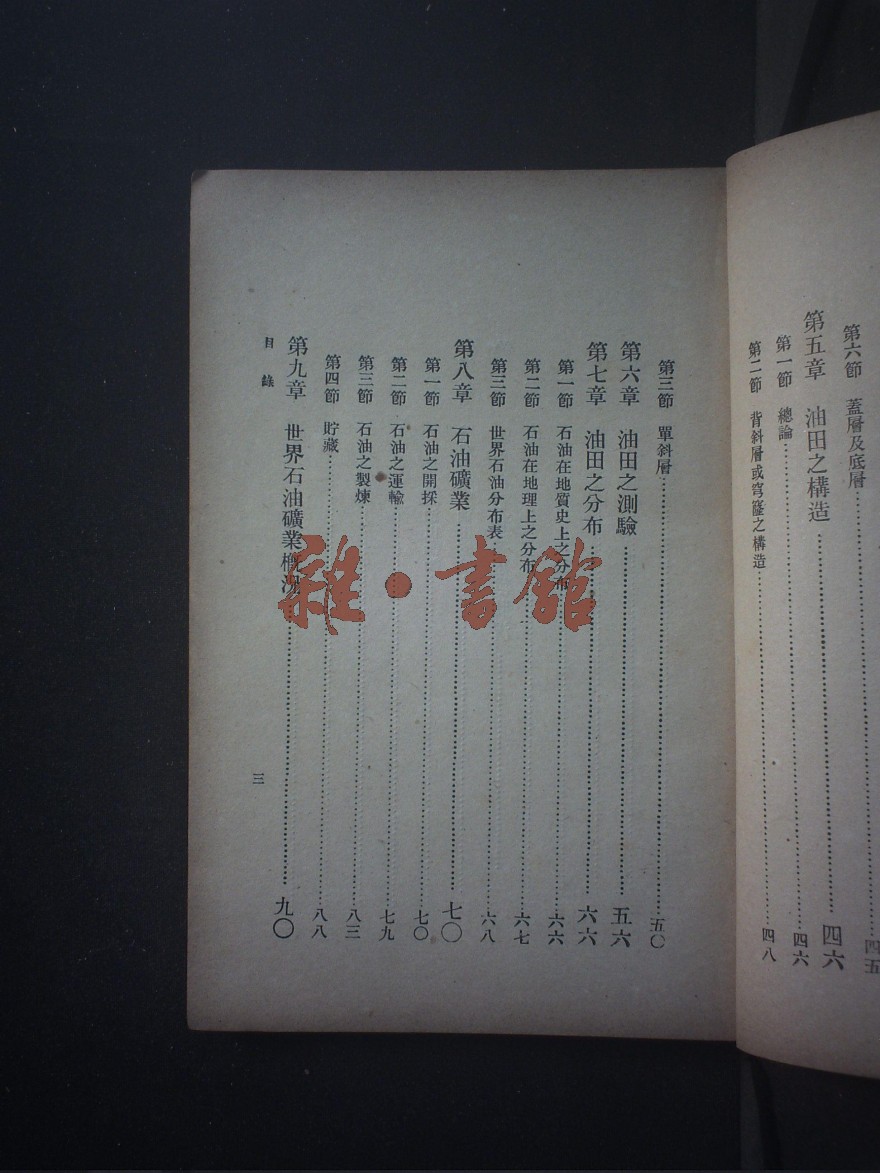 第六節　蓋層及底層……四五
第五章　油田之構造……四六
第一節　總論……四六
第二節　背斜層或穹窿之構造……四八
第三節　單斜層……五〇
第六章　油田之測驗……五六
第七章　油田之分布……六六
第一節　石油在地質史上之分布……六六
第二節　石油在地理上之分布……六七
第三節　世界石油分布表……六八
第八章　石油礦業……七〇
第一節　石油之開採……七〇
第二節　石油之運輸……七九
第三節　石油之製煉……八三
第四節　貯藏……八八
第九章　世界石油礦業概況……九〇
目錄
三
雜·書館